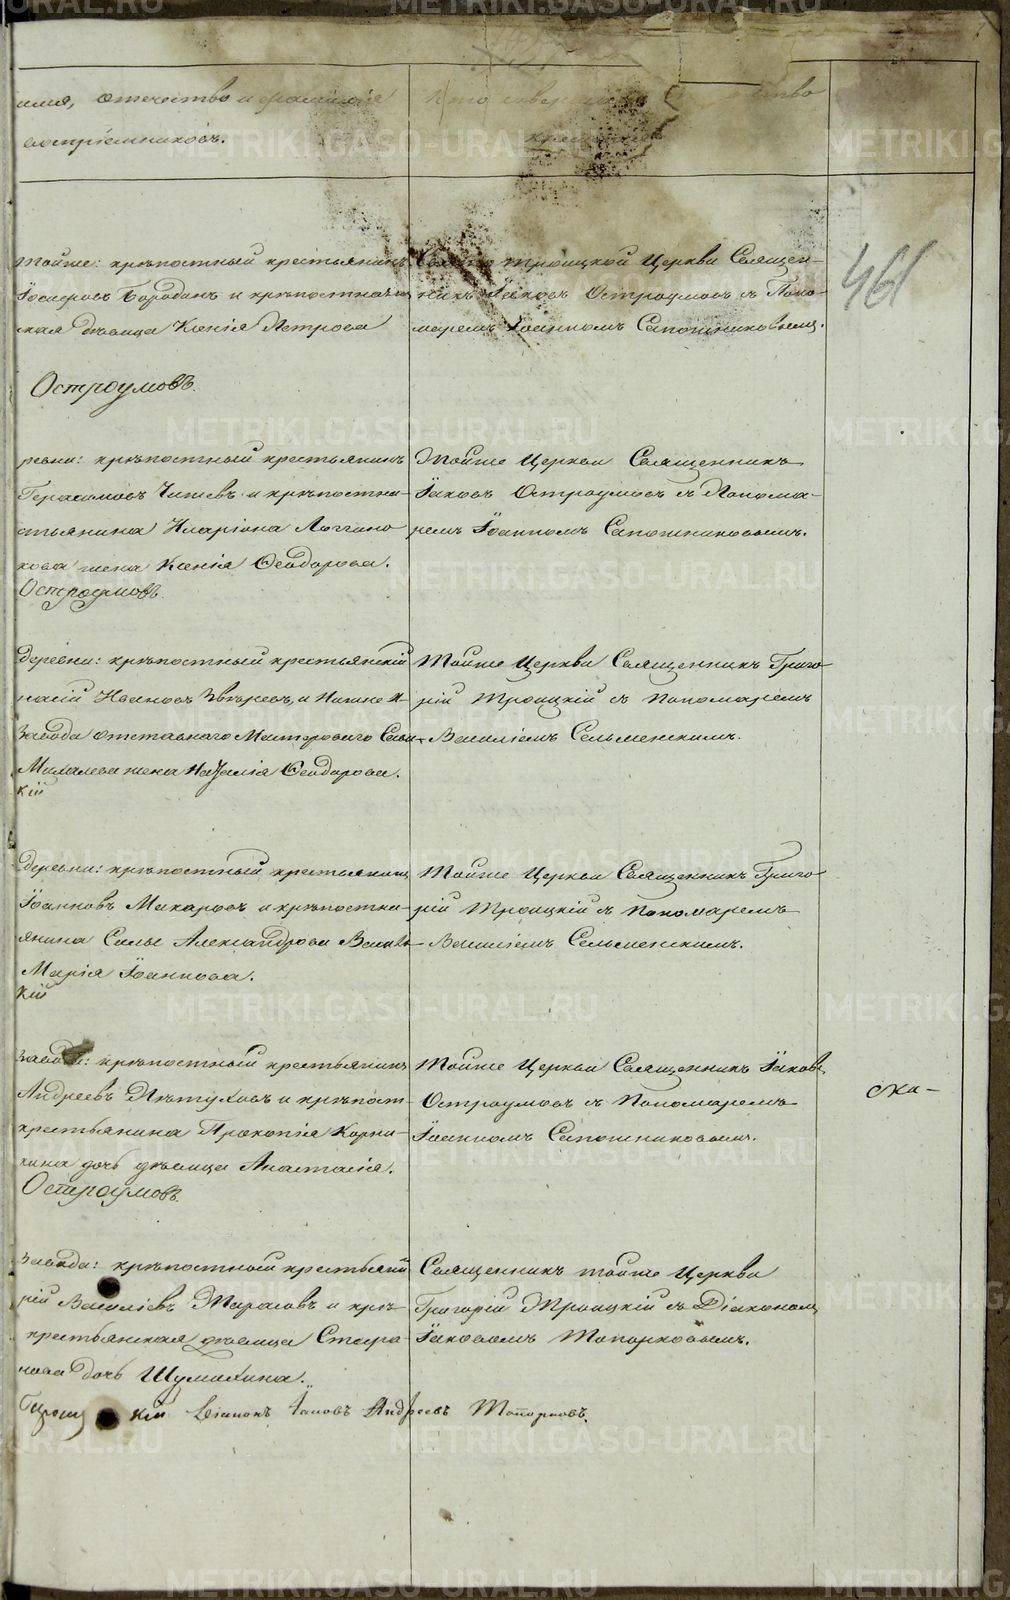 имя, отечество и фамилія
воспріемниковъ.
Кто совершалъ таинство
крещенія
461
тойже: крѣпостный крестьянинъ
Іосифовъ Бородинъ и крѣпостная
ская дѣвица Ксенія Петрова
Остроумовъ.
Свято Троицкой Церкви Священ-
никъ Іаковъ Остроумовъ съ Поно-
маремъ Іоанномъ Сапожниковымъ.
ревни: крѣпостный крестьянинъ
Герасимовъ и крѣпостна-
стьянина Иларіона Логино-
кова жена Ксенія Ѳеодорова.
Остроумовъ.
Тойже Церкви Священникъ
Іаковъ Остроумовъ съ Понома-
ремъ Іоанномъ Сапожниковымъ.
деревни: крѣпостный крестьянскій
насій Ивановъ Звѣревъ, и Нижне И
завода отставнаго Мастероваго Сави
Михалева жена Наталія Ѳеодорова.
кій
Тойже Церкви Священникъ Григо-
рій Троицкій съ Пономаремъ
Василіемъ Сельменскимъ.
деревни: крѣпостный крестьянинъ
Іоанновъ Макаровъ и крѣпостна-
янина Силы Александрова
Марія Іоаннова.
кій
Тойже Церкви Священникъ Григо-
рій Троицкій съ Пономаремъ
Василіемъ Сельменскимъ.
завода: крѣпостный крестьянинъ
Андреевъ Пѣтуховъ и крѣпост-
крестьянина Прокопія Корни-
хина дочь дѣвица Анастасія.
Остроумовъ.
Тойже Церкви Священникъ Іаковъ
Остроумовъ съ Пономаремъ
Іоанномъ Сапожниковымъ.
ска-
завода: крѣпостный крестьянинъ
рій Василіевъ Тарасовъ и крѣ-
крестьянская дѣвица Стефа-
нова дочь Шумихина.
кій Діаконъ Іаковъ Андреевъ Топорковъ.
Священникъ тойже Церкви
Григорій Троицкій съ Діакономъ
Іаковомъ Топорковымъ.
METRIKI.GASO-URAL.RU